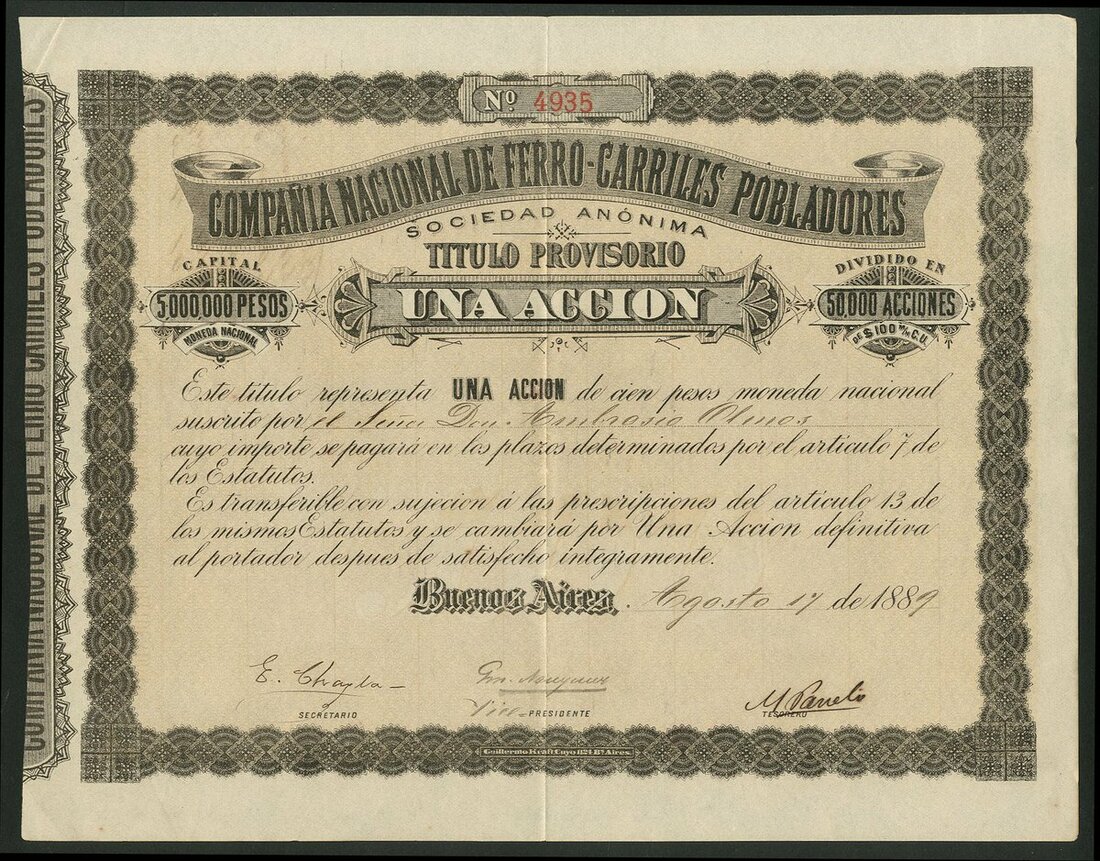 Nº 4935
COMPAÑIA NACIONAL DE FERRO-CARRILES POBLADORES
SOCIEDAD ANÓNIMA
TITULO PROVISORIO
UNA ACCION
CAPITAL
5.000,000 PESOS
MONEDA NACIONAL
DIVIDIDO EN
50,000 ACCIONES
DE $ 100 m/n C.U.
Este titulo representa UNA ACCION de cien pesos moneda nacional
suscrito por el Señor Don Ambrosio Olmos
cuyo importe se pagará en los plazos determinados por el artículo 7 de
los Estatutos.
Es transferible con sujecion á las prescripciones del artículo 13 de
los mismos Estatutos y se cambiará por Una Accion definitiva
al portador despues de satisfecho integramente.
Buenos Aires, Agosto 17 de 1889
SECRETARIO
Vice-PRESIDENTE
TESORERO
Guillermo Kraft Cuyo 1124 Bs Aires
COMPAÑIA NACIONAL DE FERRO CARRILES POBLADORES